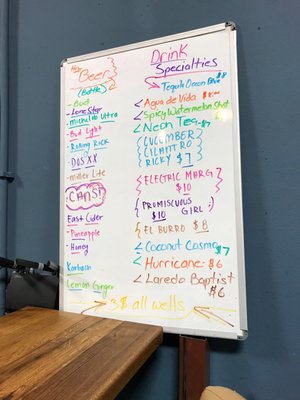 Beer
(Bottle)
- Bud
- Lone Star
- Michelob Ultra
- Bud Light
- Rolling Rick
- DOS XX
- Miller Lite
CANS!
East Cider
- Pineapple
- Honey
Karbach
Lemon Ginger
Drink
Specialties
Tequila Ocean Blue $8
Agua de Vida
Spicy Watermelon Shot
Neon Tea - $7
CUCUMBER
CILANTRO
RICKY $7
ELECTRIC MARG
$10
PROMISCUOUS
$10 GIRL ;)
EL BURRO $8
Coconut Cosmo $7
Hurricane - $6
Laredo Baptist
$6
3$ all wells